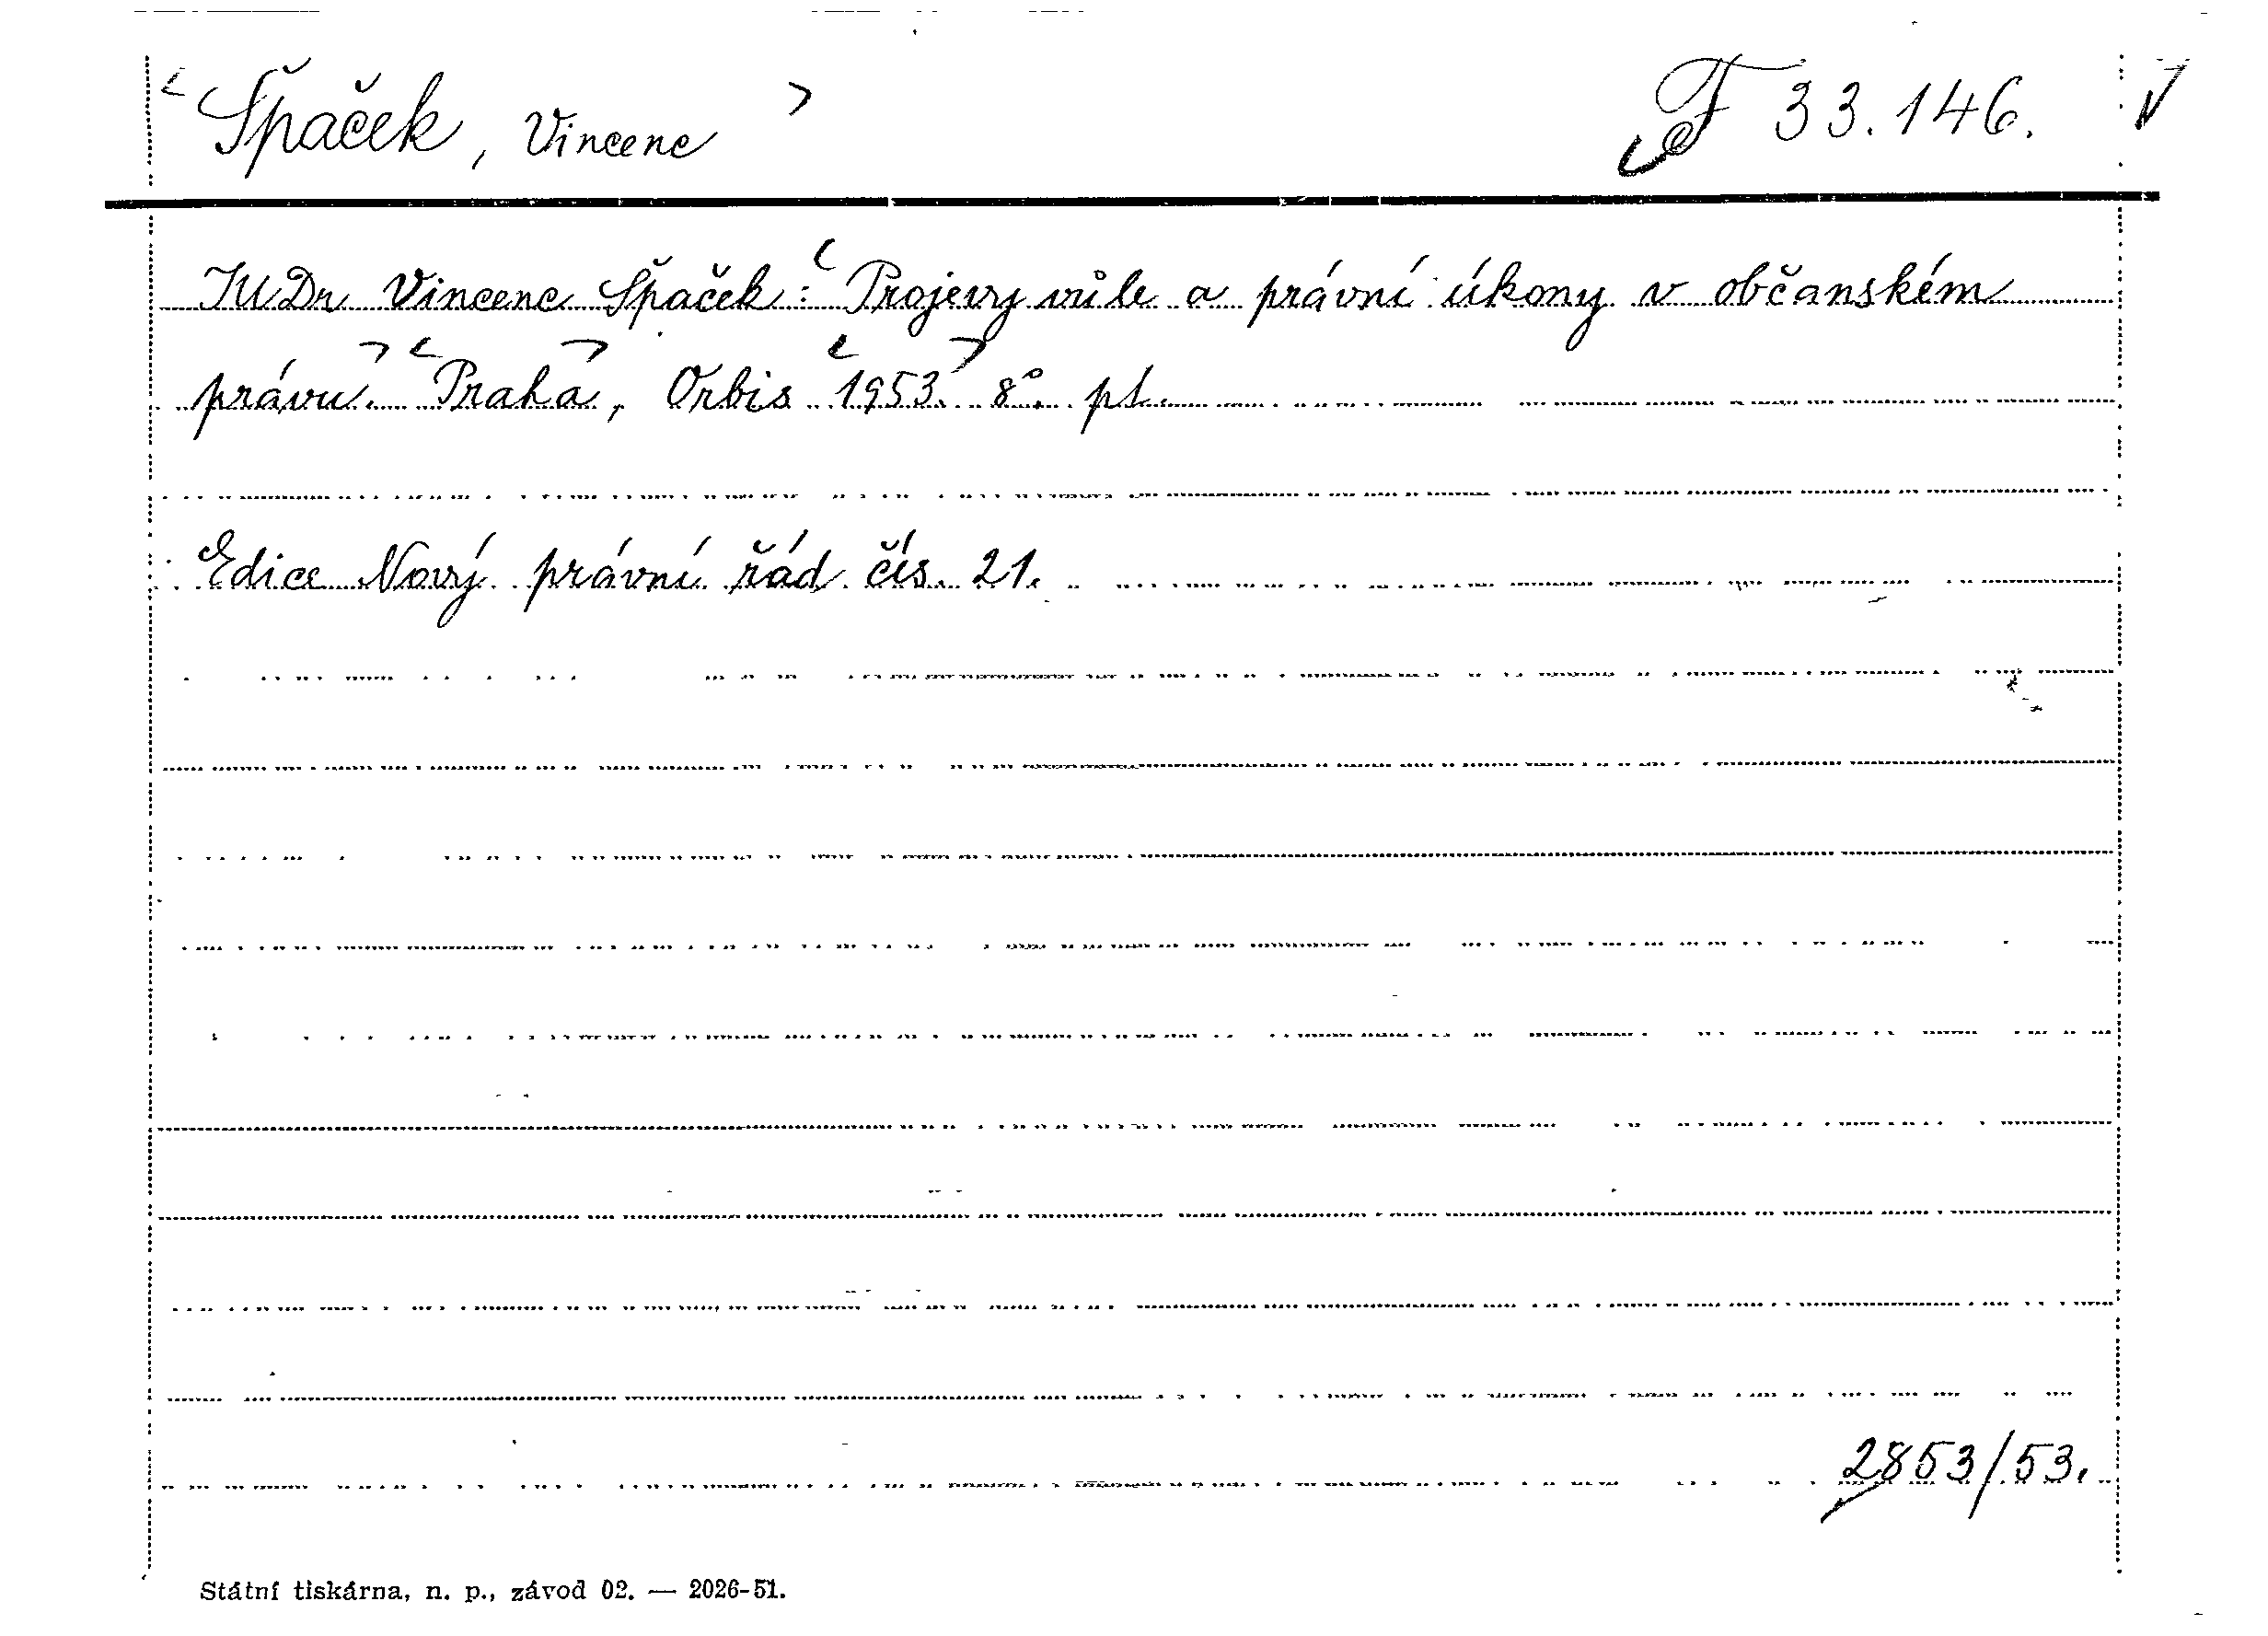 Špaček, Vincenc F 33.146.
JUDr Vincenc Špaček: Projevy vůle a právní úkony v občanském
právu. Praha, Orbis 1953. 8°. pl.
Edice Nový právní řád čís. 21.
2853/53.
Státní tiskárna, n. p., závod 02. — 2026-51.